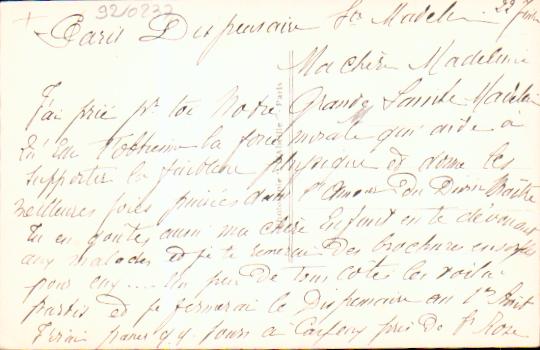 920232
+ Paris Dispensaire Ste Madeleine 22
Ma chère Madeleine
J'ai prié pr toi Notre Grande Sainte Madeleine
la force morale qui aide à
supporter la faiblesse physique et donne les
meilleures joies puisées dans l'Amour Du Divin Maître
Tu en goûtes aussi ma chère Enfant en te dévouant
aux malades et je te Des brochures
pour eux .... Un peu De tous côtés les voilà
partis et je fermerai le Dispensaire au 1er Août
J'irai passer qq jours à près De Ste Rose